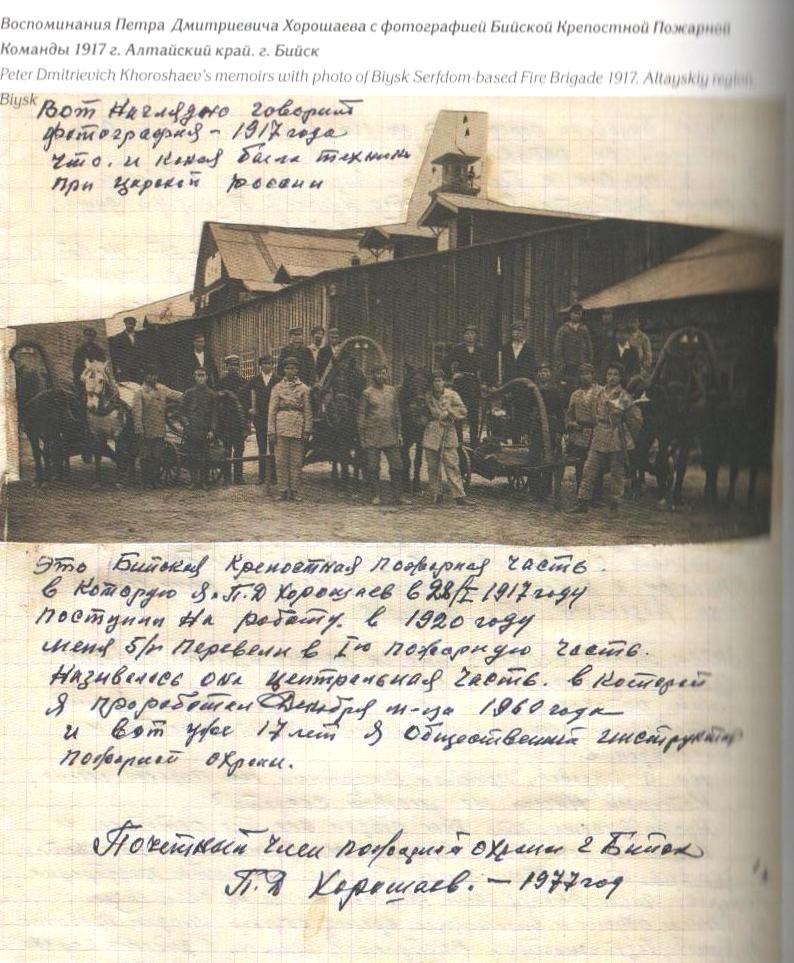 Воспоминания Петра Дмитриевича Хорошаева с фотографией Бийской Крепостной Пожарной
Команды 1917 г. Алтайский край. г. Бийск
Peter Dmitrievich Khoroshaev's memoirs with photo of Biysk Serfdom-based Fire Brigade 1917. Altayskiy region.
Biysk
Вот Наглядно говорит
фотография – 1917 года
что. и какая была техника
при царской россии
это Бийская Крепостная пожарная часть.
в Которую я. П.Д Хорошаев в 28/I 1917 году
поступил на работу. в 1920 году
меня 5/IV перевели в Iю пожарную часть.
Называлась она центральная часть. в которой
я проработал Декабря м-ца 1960 года
и вот уже 17 лет я общественный инструктор
пожарной охраны.
Почетный член пожарной охраны г Бийск
П.Д Хорошаев. – 1977 год